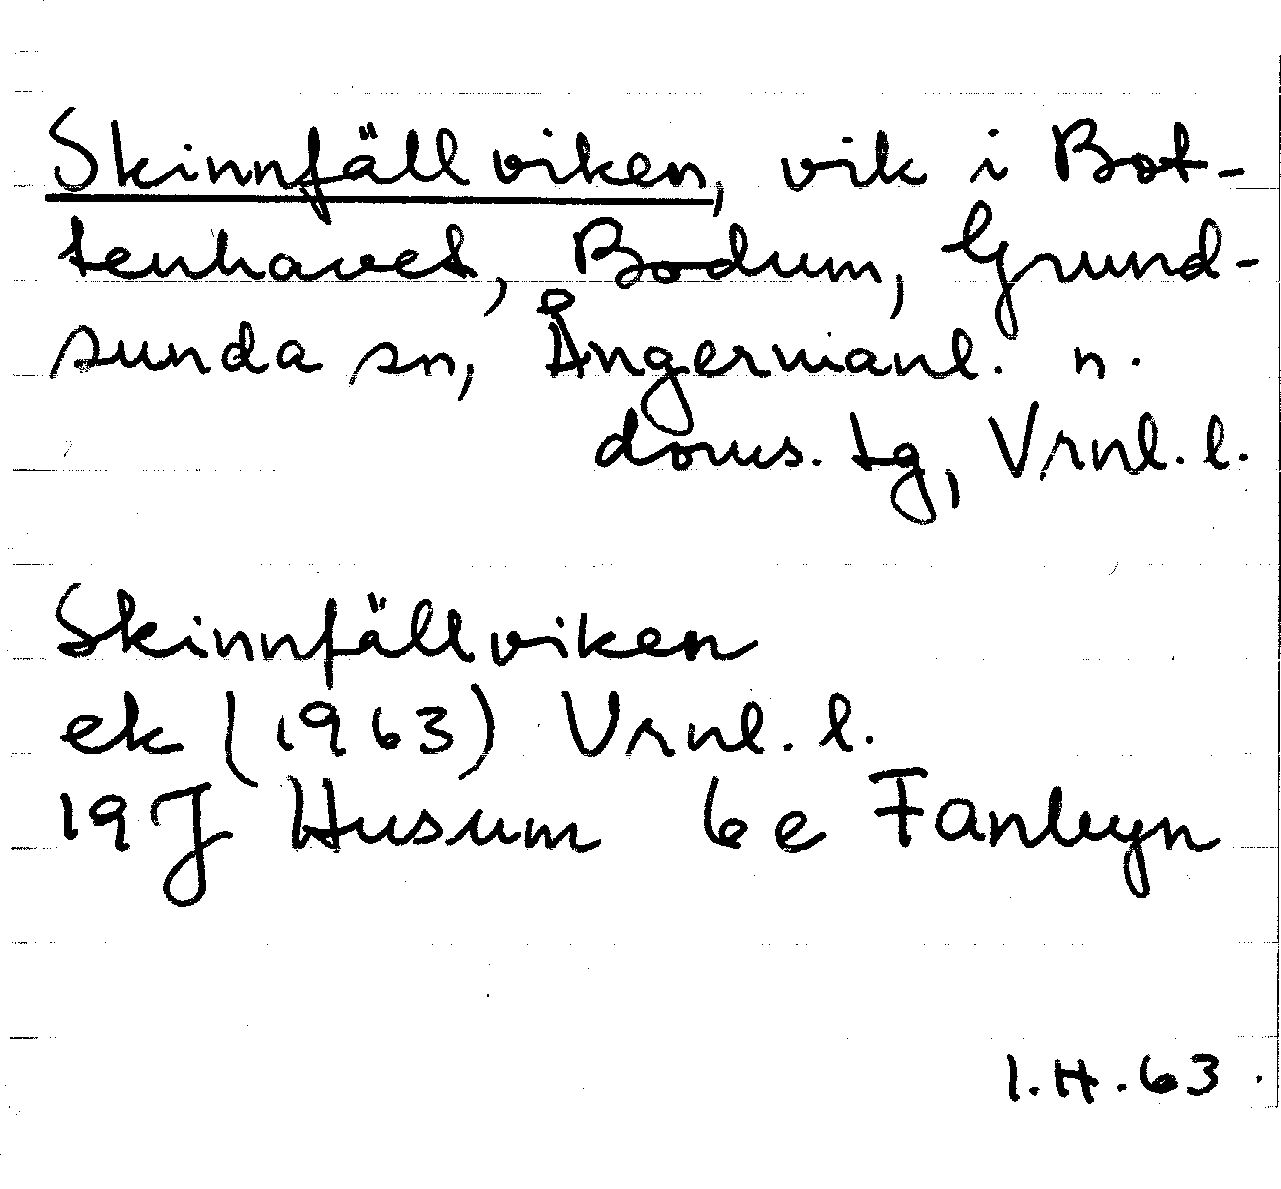 Skinnfällviken, vik i Bot-
tenhavet, Bodum, Grund-
sunda sn, Ångermanl. n.
doms. tg, Vrnl. l.
Skinnfällviken
ek (1963) Vrnl. l.
19J Husum 6e Fanbyn
I.H.63